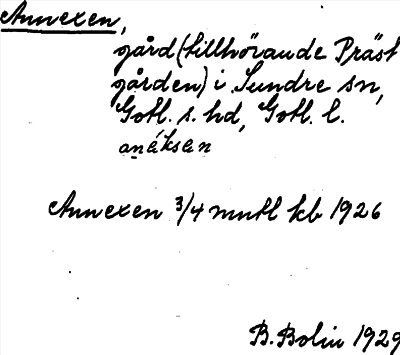 Annexen,
gård (tillhörande Präst
gården) i Sundre sn,
Gotl. s. hd, Gotl. l.
anéksen
Annexen 3/4 mntl kb 1926
B. Bolin 1929